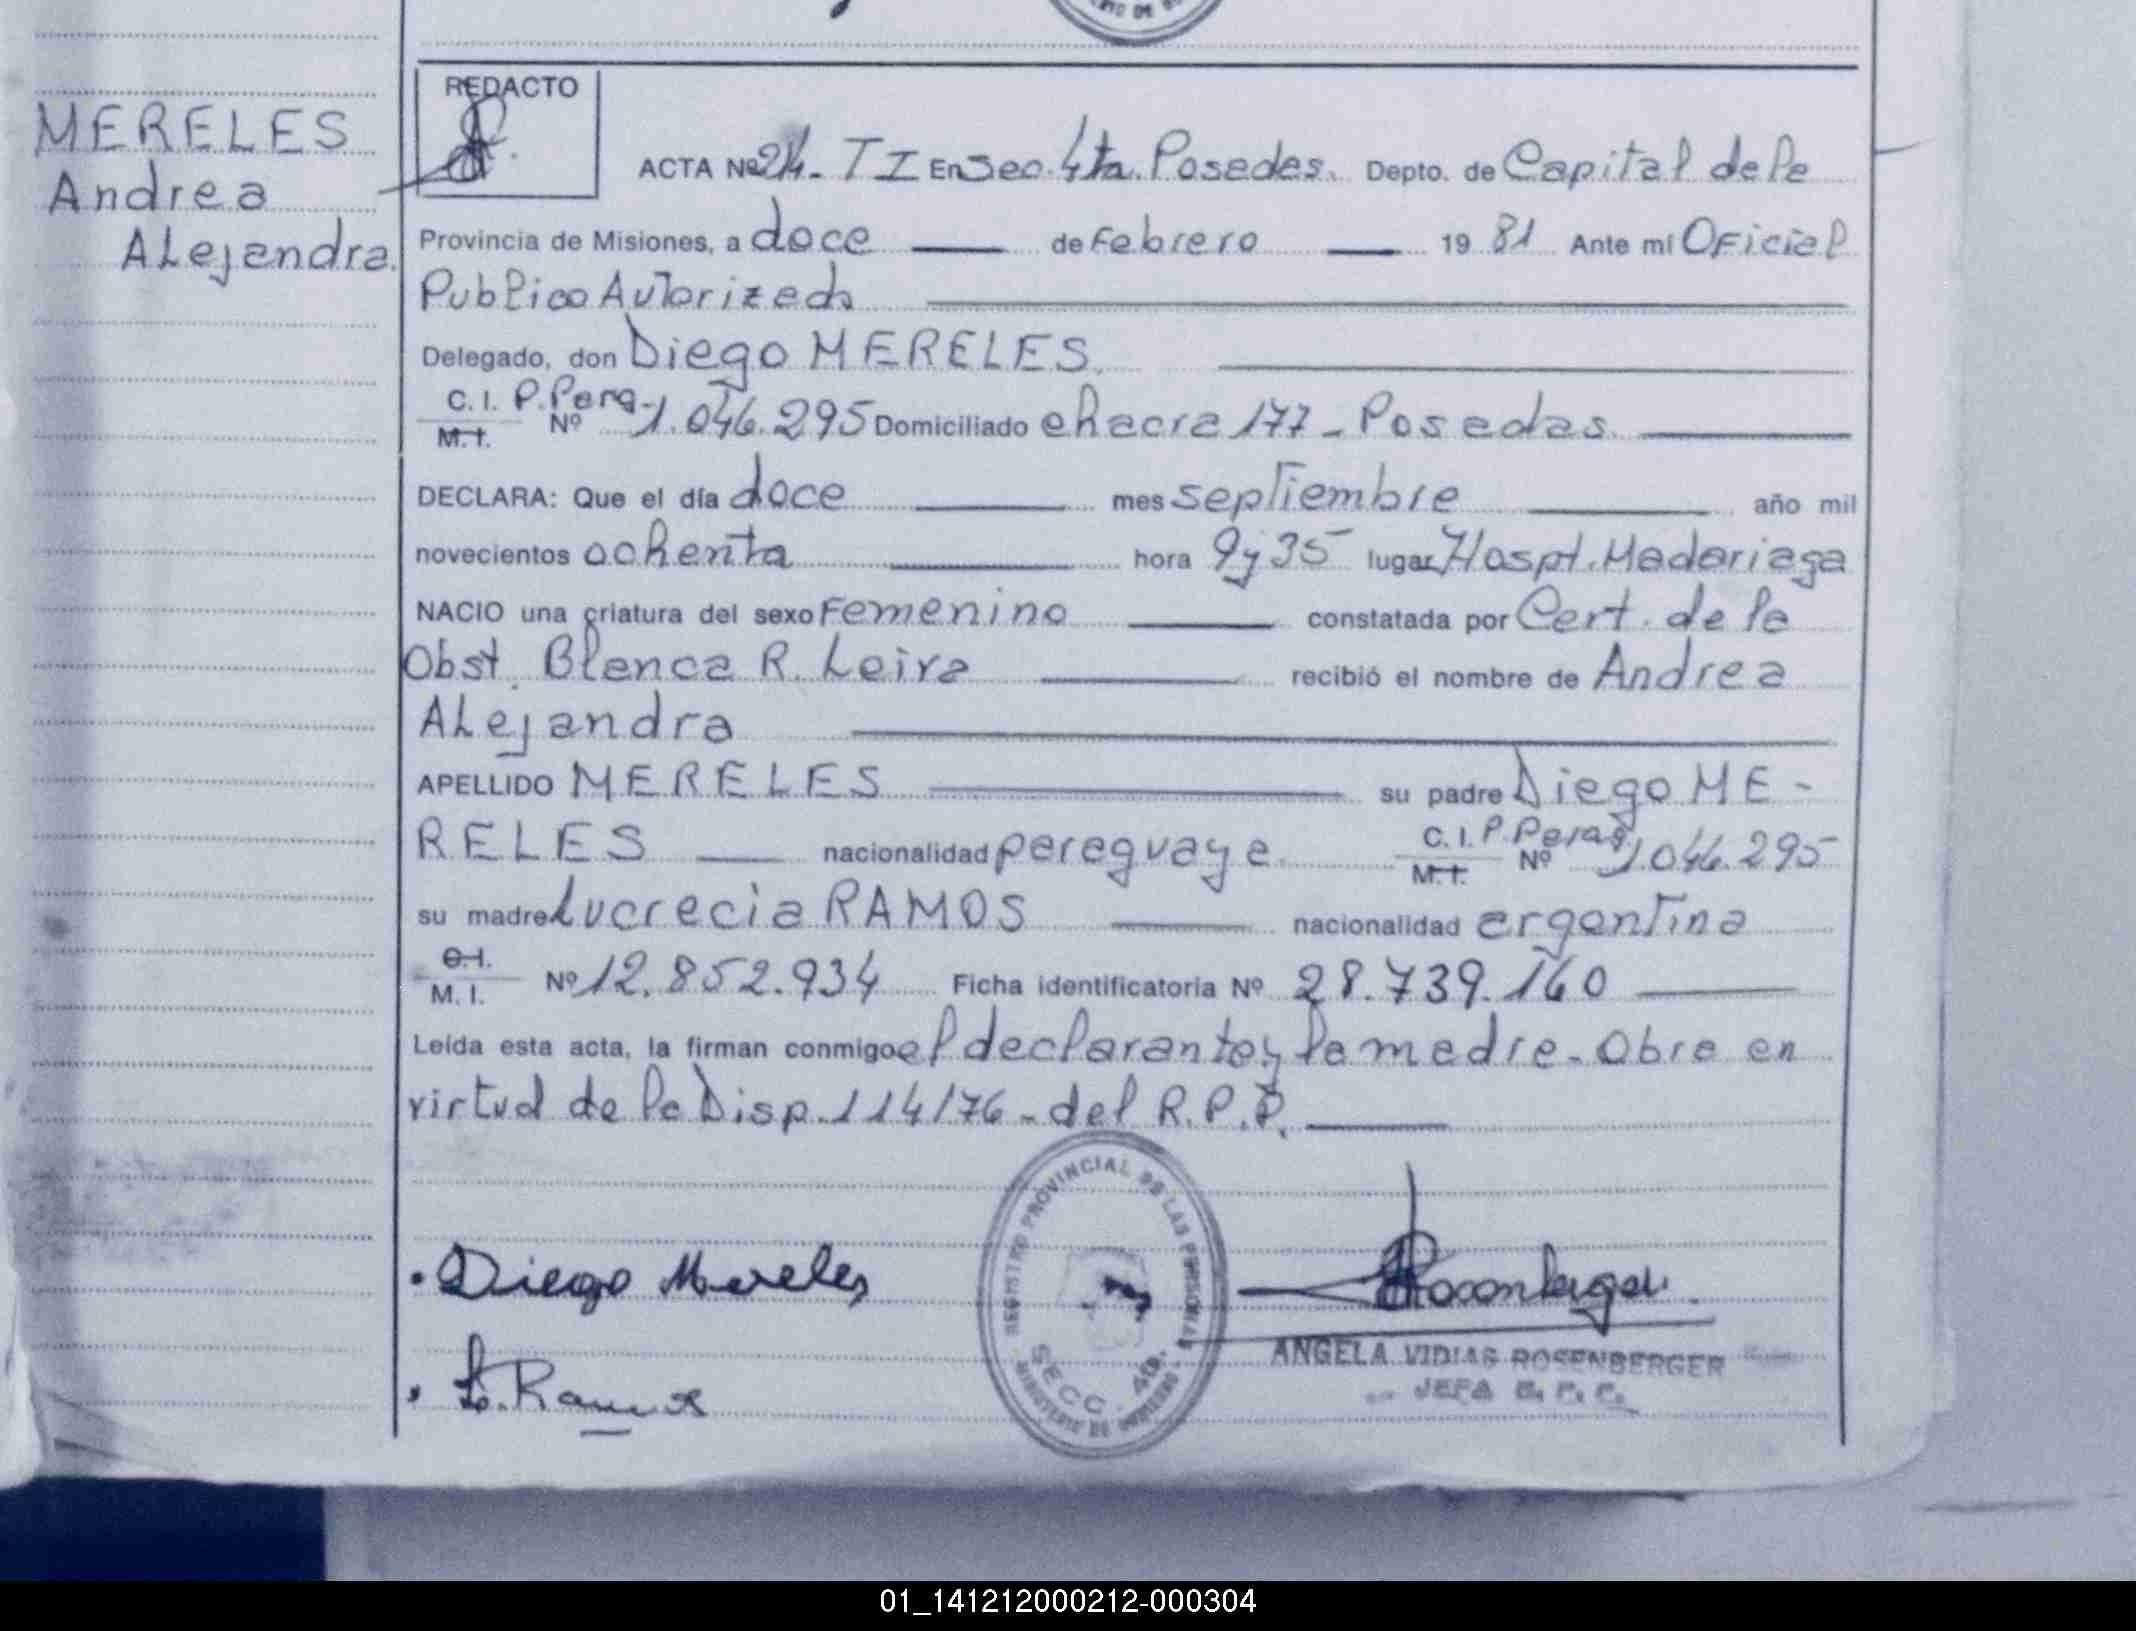 REDACTO
MERELES
Andrea
ALejandra.
ACTA Nº 214- T I En Sec. 4ta. Posadas. Depto. de Capital de la
Provincia de Misiones, a doce de Febrero 19 81 Ante mí Oficial
Publico Autorizado
Delegado, don Diego MERELES.
C. I. P. Parg. M. I. Nº 1.046.295 Domiciliado chacra 177 - Posadas.
DECLARA: Que el día doce mes septiembre año mil
novecientos ochenta hora 9 y 35 lugar Hospt. Madariaga
NACIO una criatura del sexo Femenino constatada por Cert. de la
Obst. Blanca R. Leiva recibió el nombre de Andrea
ALejandra
APELLIDO MERELES su padre Diego ME-
RELES nacionalidad paraguaya C. I. P. Parag. M. I. Nº 1.046.295
su madre Lucrecia RAMOS nacionalidad argentina
C. I. M. I. Nº 12.852.934 Ficha identificatoria Nº 28.739.160
Leída esta acta, la firman conmigo el declarante y la madre - Obra en
virtud de la Disp. 114/76 - del R.P.P.
REGISTRO PROVINCIAL DE LAS PERSONAS
SECC. 4a.
MINISTERIO DE GOBIERNO
Diego Mereles
L. Ramos
Rosenberger
ANGELA VIDIAS ROSENBERGER
JEFA
01_141212000212-000304